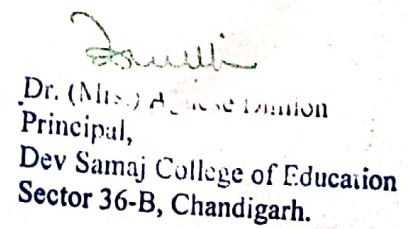 Dr. (Mrs.)
Principal,
Dev Samaj College of Education
Sector 36-B, Chandigarh.